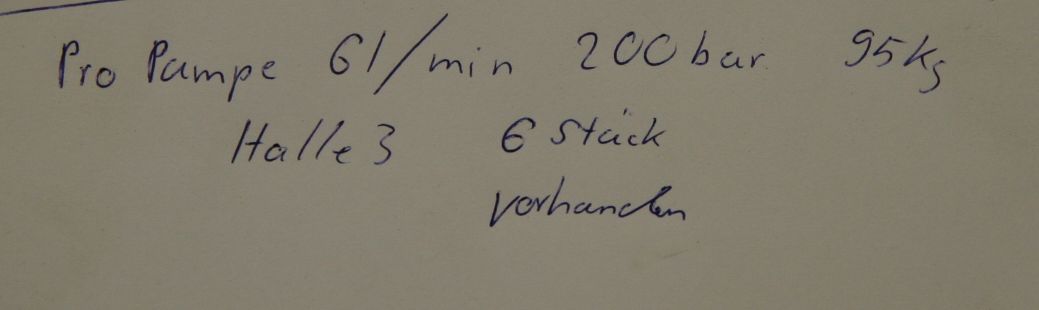 Pro Pumpe 6l/min 200bar 95kg
Halle 3 6 Stück
vorhanden